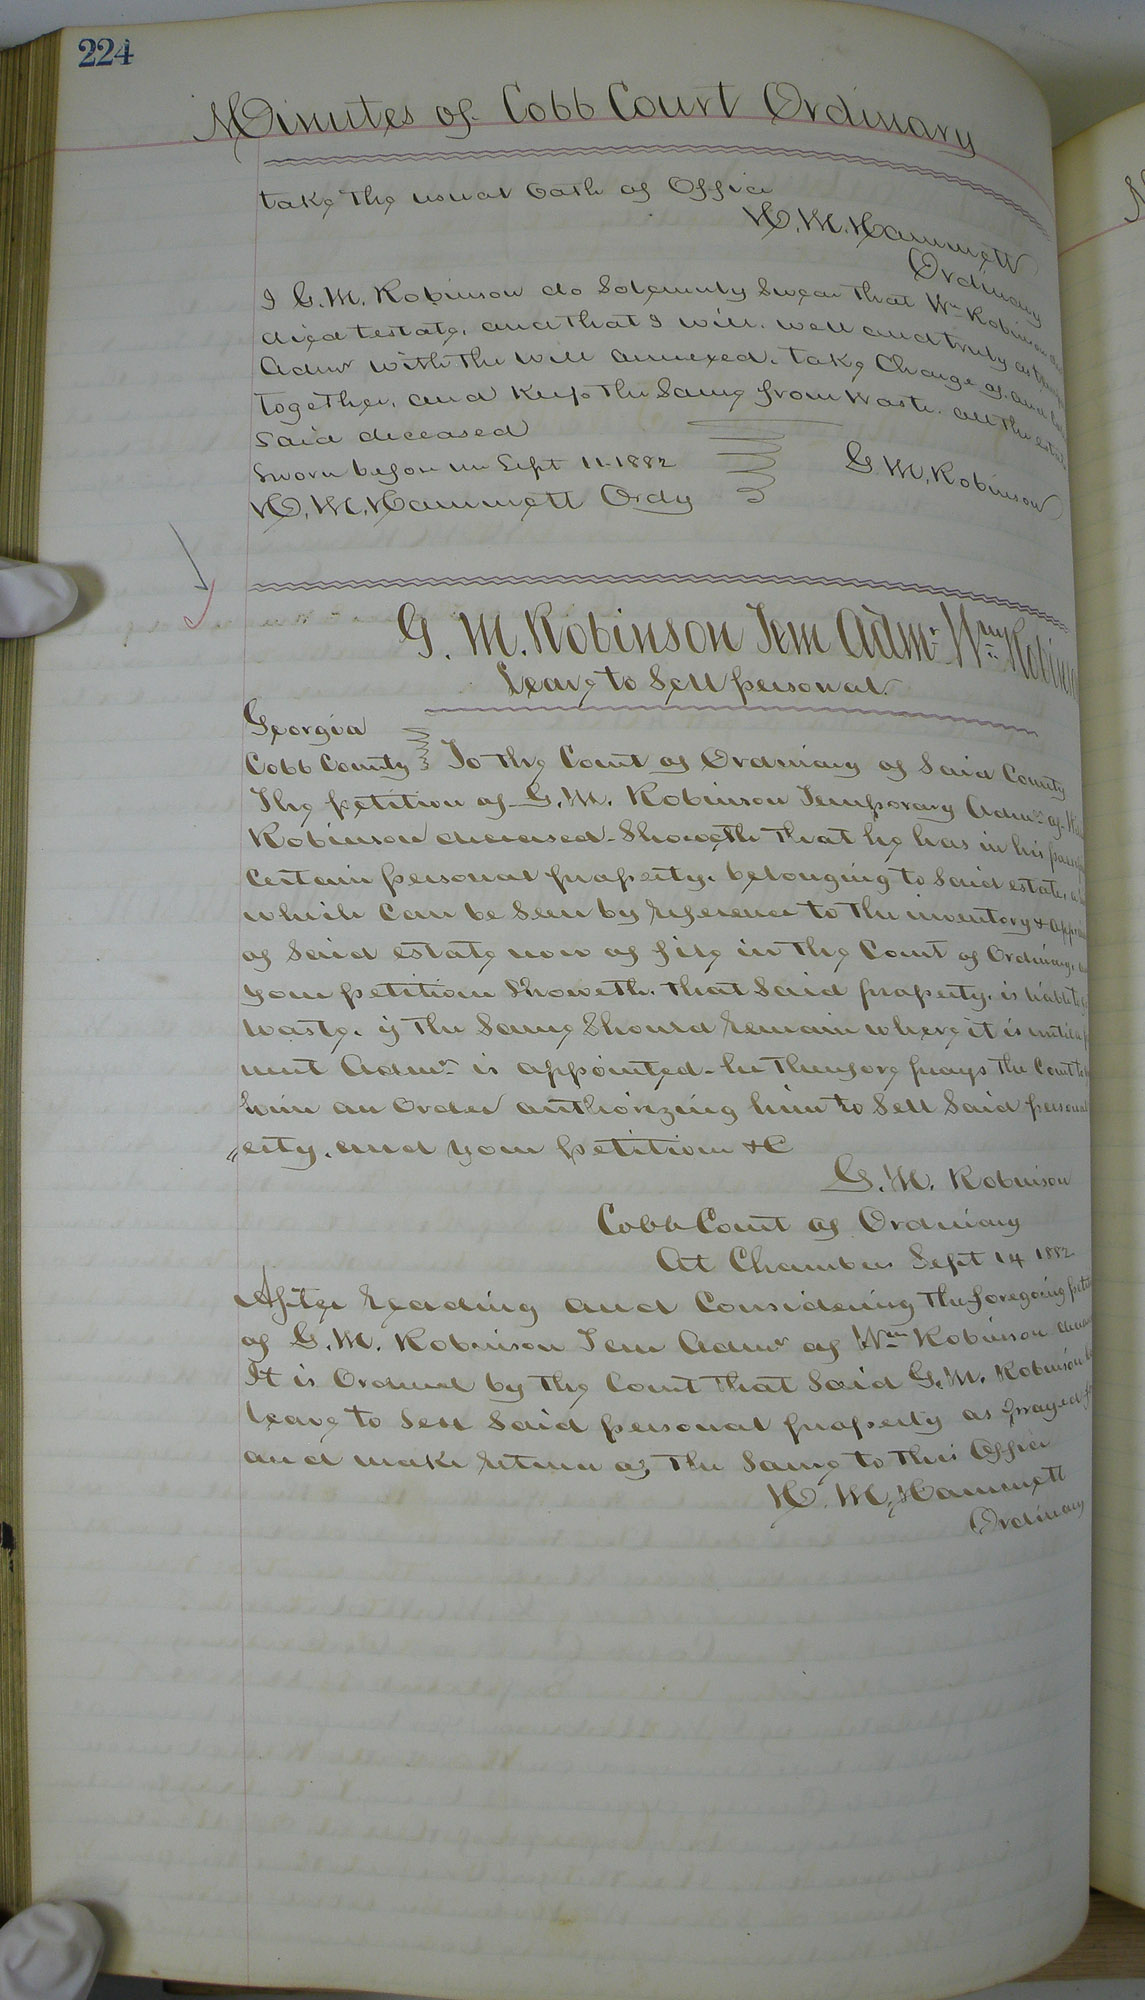 224
Minutes of Cobb Court Ordinary
take the usual Oath of Office
H. M. Hammett
Ordinary
I G. M. Robinson do Solemnly Swear that Wm Robinson
died testate, and that I will, well and truly as
Admr with the will annexed, take Charge of, and
together, and keep the Same from Waste, all the
Said deceased
Sworn before me Sept 11-1882
G. M. Robinson
H. M. Hammett Ordy
G. M. Robinson Tem Admr Wm Robinson
Leave to Sell personal
Georgia
Cobb County To the Court of Ordinary of Said County
The petition of G. M. Robinson Temporary Admr of
Robinson deceased Showeth that he has in his
Certain personal property, belonging to Said estate,
which can be Seen by reference to the inventory &
of Said estate now of file in the Court of Ordinary,
your petition Showeth, that Said property, is liable to
waste, if the Same Should remain where it is until
nent Admr is appointed - he therefore prays the Court to
him an Order authorizing him to Sell Said personal
"erty, and your petition &C
G. M. Robinson
Cobb Court of Ordinary
At Chambers Sept 14 1882
After reading and Considering the foregoing
of G. M. Robinson Tem Admr of Wm Robinson
It is Ordered by the Court that Said G. M. Robinson
leave to Sell Said personal property as prayed
and make return of the Same to this Office
H. M. Hammett
Ordinary